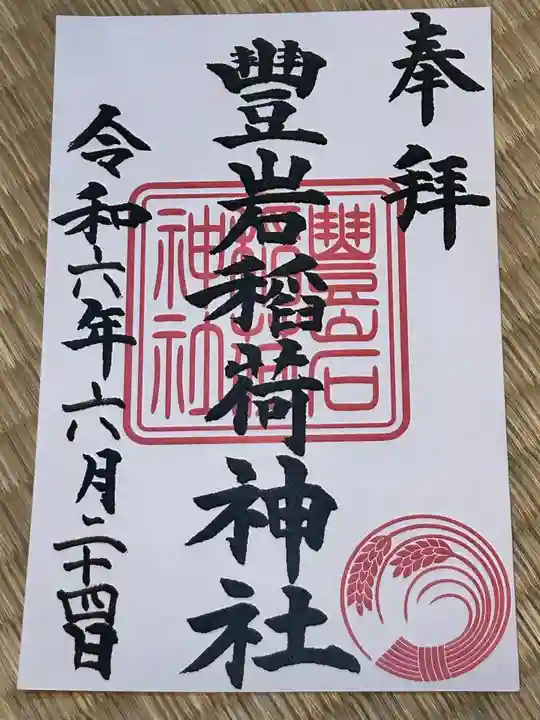 奉拝
豐岩稲荷神社
令和六年六月二十四日
豐岩
稲荷
神社